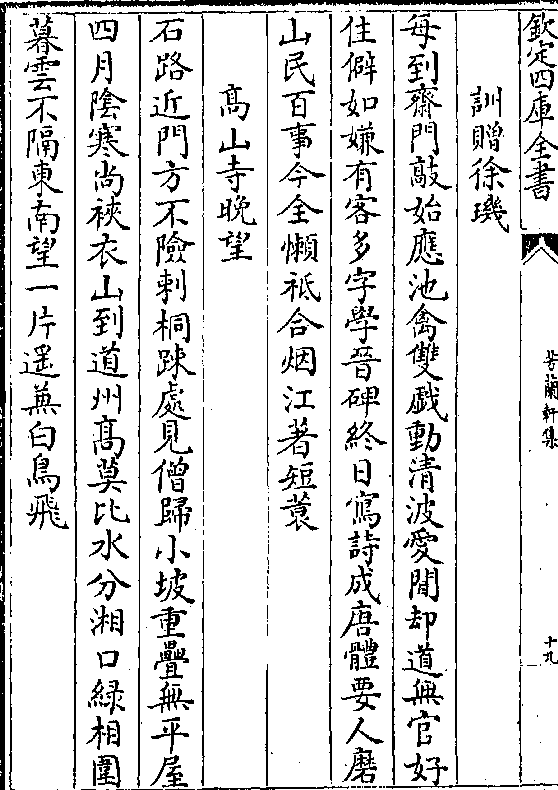 欽定四庫全書
芳蘭軒集
十九
訓贈徐璣
每到齋門敲始應池禽雙戲動清波愛閒却道無官好
住僻如嫌有客多字學晉碑終日寫詩成唐體要人磨
山民百事今全懶祗合烟江著短蓑
高山寺晚望
石路近門方不險刺桐踈處見僧歸小坡重疊無平屋
四月陰寒尚裌衣山到道州髙莫比水分湘口緑相圍
暮雲不隔東南望一片遥兼白鳥飛